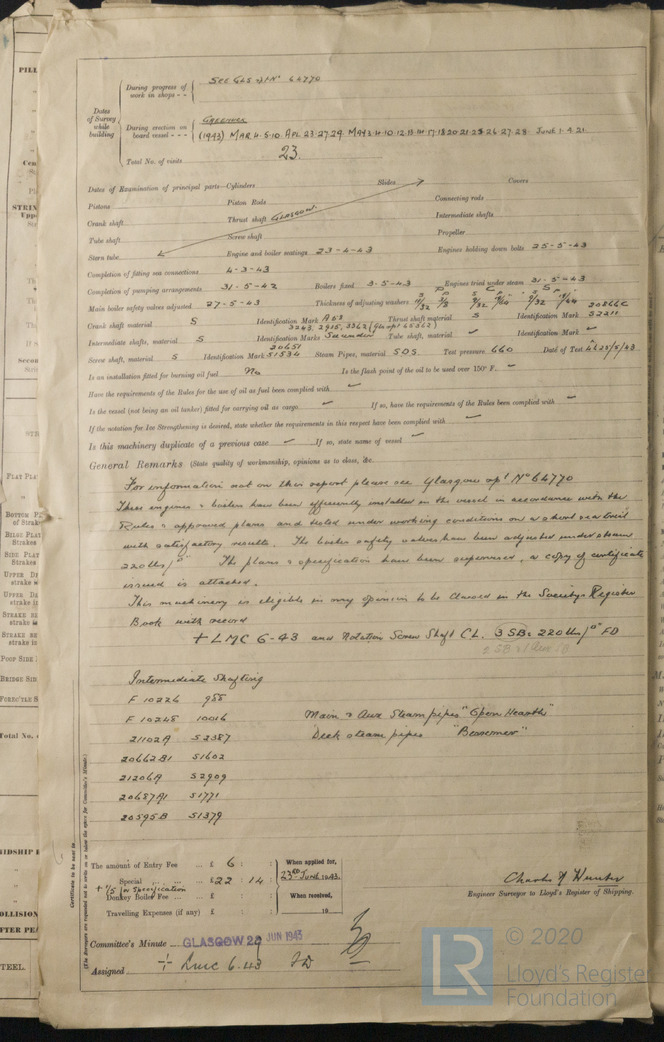 During progress of work in shops - - SEE GLS RPT No 64770
Dates of Survey while building
GREENOCK
During erection on board vessel - - - (1943) MAR. 4. 5. 10. APL. 23. 27. 29. MAY 3. 4. 10. 12. 13. 14. 17. 18. 20. 21. 25. 26. 27. 28. JUNE 1. 4. 21.
Total No. of visits 23.
Dates of Examination of principal parts—Cylinders Slides Covers
Pistons Piston Rods Connecting rods
Crank shaft Thrust shaft GLASGOW. Intermediate shafts
Tube shaft Screw shaft Propeller
Stern tube Engine and boiler seatings 23-4-43 Engines holding down bolts 25-5-43
Completion of fitting sea connections 4-3-43
Completion of pumping arrangements 31-5-43 Boilers fixed 3-5-43 Engines tried under steam 31-5-43
Main boiler safety valves adjusted 27-5-43 Thickness of adjusting washers
Crank shaft material S Identification Mark A53 Thrust shaft material S Identification Mark 20866C 52211
Intermediate shafts, material S Identification Marks See under Tube shaft, material Identification Mark
Screw shaft, material S Identification Mark 20651 51534 Steam Pipes, material SDS Test pressure 660 Date of Test
Is an installation fitted for burning oil fuel No Is the flash point of the oil to be used over 150° F.
Have the requirements of the Rules for the use of oil as fuel been complied with
Is the vessel (not being an oil tanker) fitted for carrying oil as cargo If so, have the requirements of the Rules been complied with
If the notation for Ice Strengthening is desired, state whether the requirements in this respect have been complied with
Is this machinery duplicate of a previous case If so, state name of vessel
General Remarks (State quality of workmanship, opinions as to class, &c.
For information not on this report please see Glasgow rpt No 64770
These engines & boilers have been efficiently installed in the vessel in accordance with the
Rules & approved plans and tested under working conditions on a short sea trial
with satisfactory results. The boiler safety valves have been adjusted under steam
220 lbs/□". The plans & specification have been supervised, a copy of certificate
issued is attached.
This machinery is eligible in my opinion to be Classed in the Society's Register
Book with record
+ LMC 6-43 and notation Screw Shaft CL. 3 SB: 220 lbs/□" FD
Intermediate Shafting
F 10226 988
F 10248 10016 Main & Aux Steam pipes "Open Hearth"
21102A 52387 Deck steam pipes "Bessemer"
20662B1 51602
21206A 52909
20657A1 51771
20595B 51379
Certificate to be sent to
(The Surveyors are requested not to write on or below the space for Committee's Minute.)
The amount of Entry Fee ... £ 6 : : When applied for,
Special ... £ 22 : 14 : 23rd June 1943.
+ 1/5 for Specification
Donkey Boiler Fee ... £ : : When received,
Travelling Expenses (if any) £ : : 19
Charles J Hunter
Engineer Surveyor to Lloyd's Register of Shipping.
Committee's Minute GLASGOW 29 JUN 1943
Assigned + LMC 6.43 FD
LR
© 2020
Lloyd's Register
Foundation